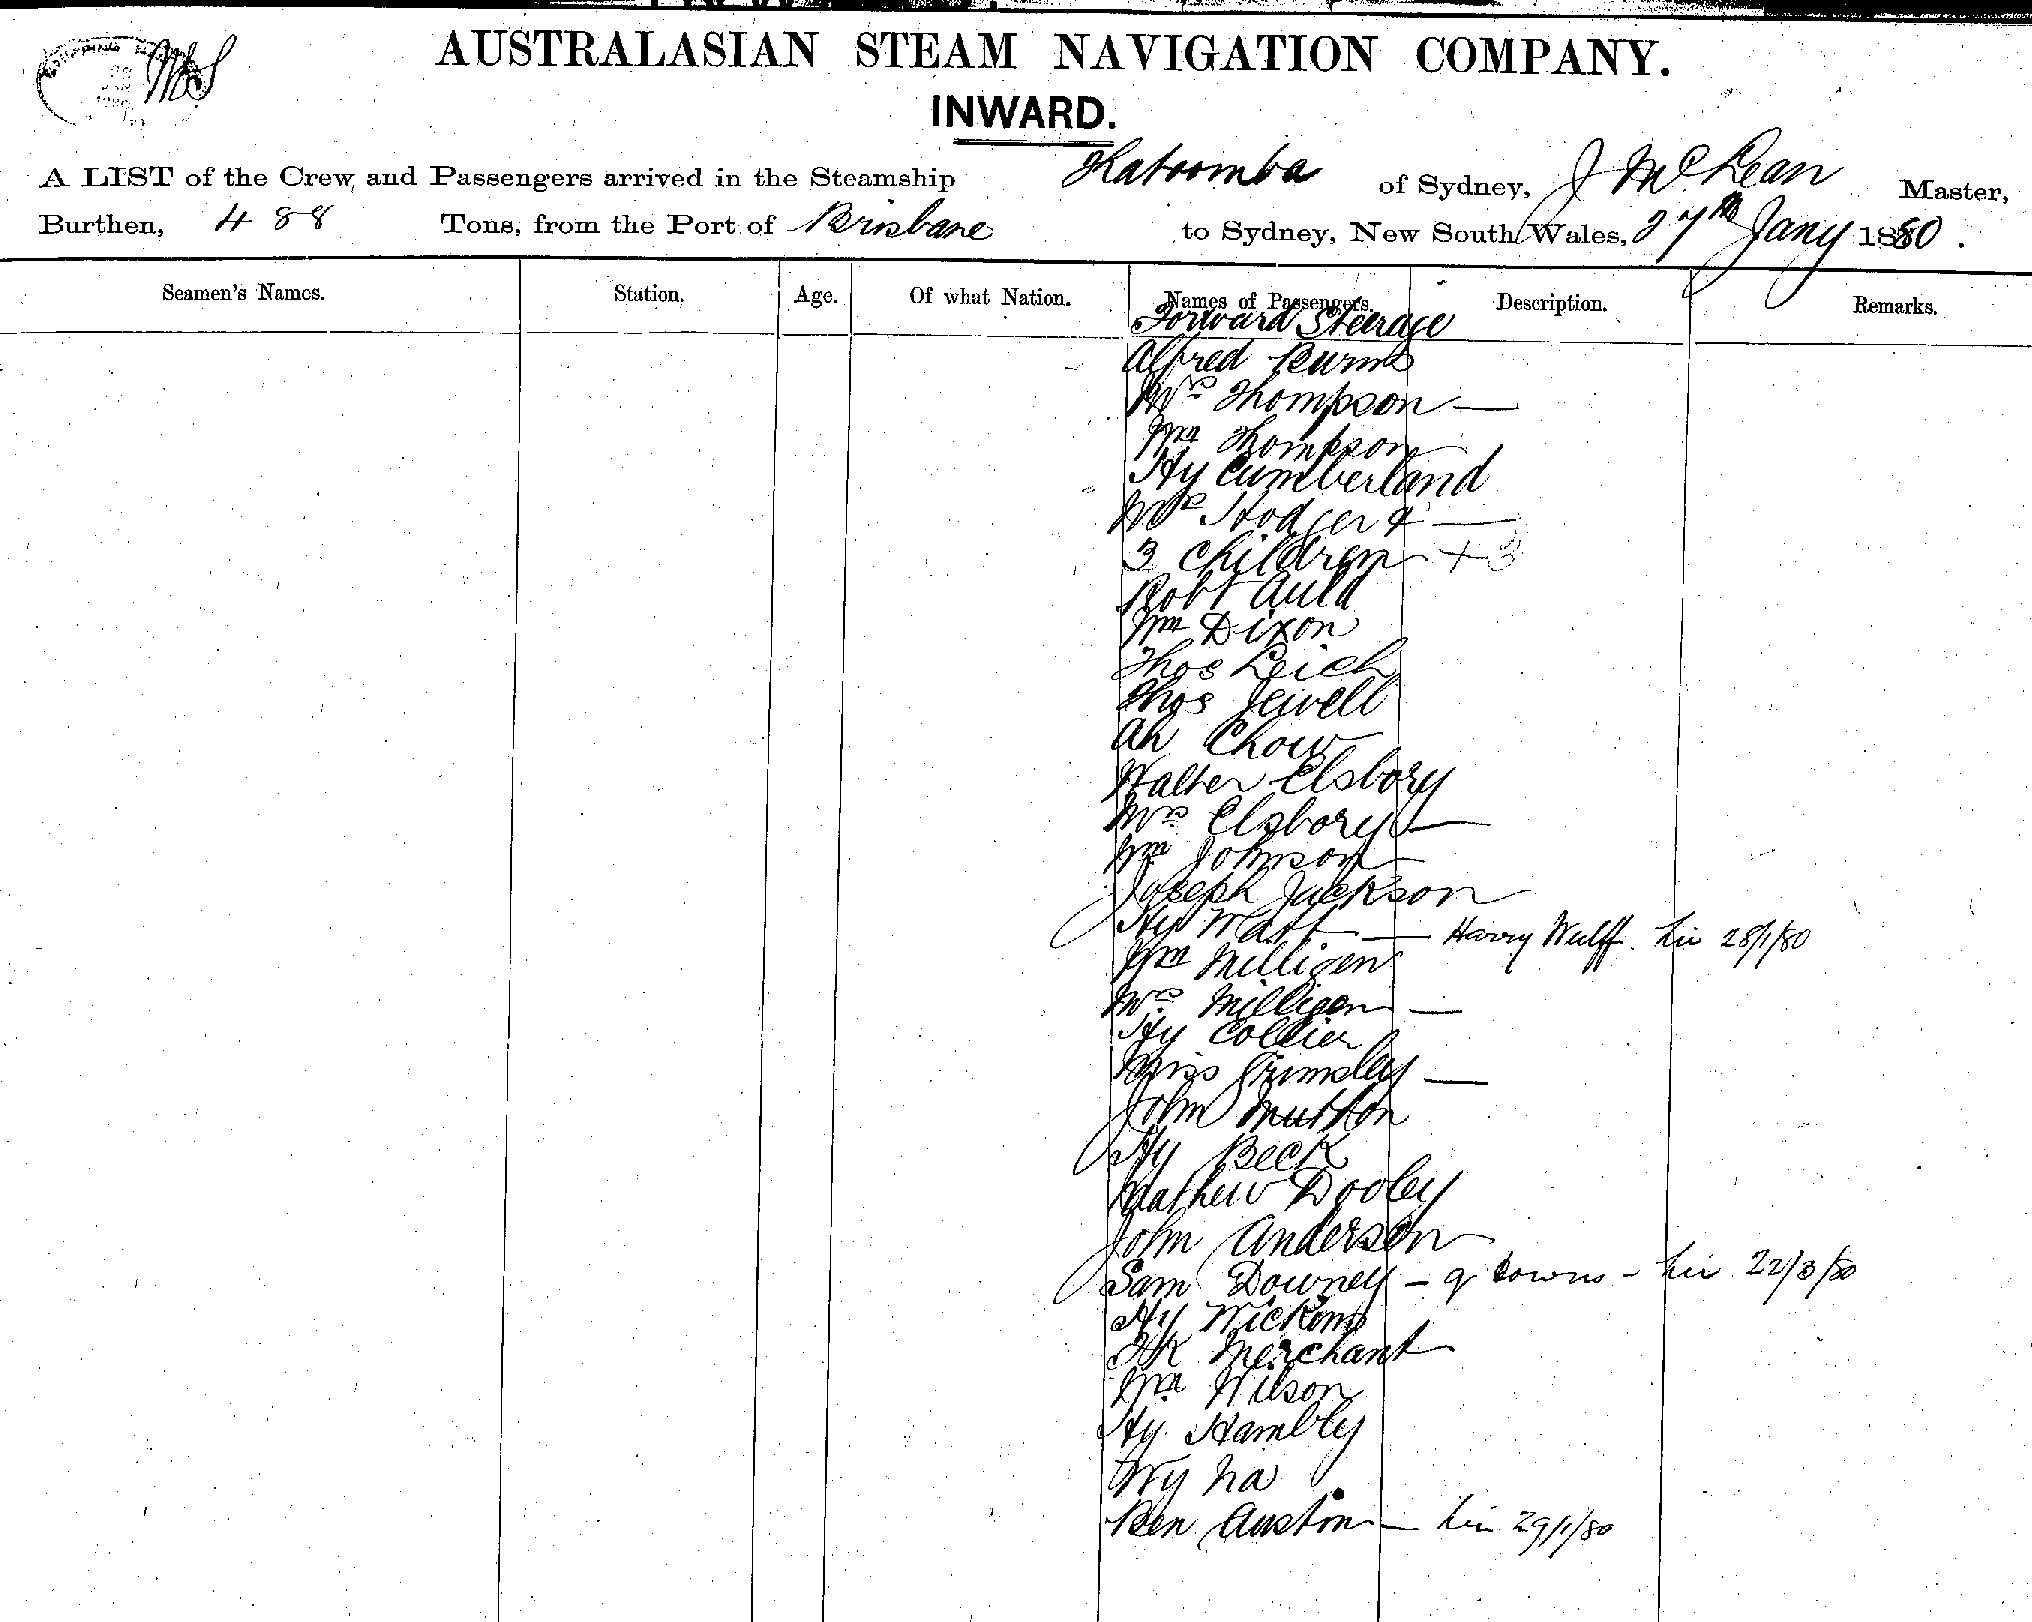 AUSTRALASIAN STEAM NAVIGATION COMPANY.
INWARD.
A LIST of the Crew, and Passengers arrived in the Steamship Katoomba of Sydney, J McLean Master,
Burthen, 488 Tons, from the Port of Brisbane to Sydney, New South Wales, 27th Jany 1880.
Seamen's Names. Station. Age. Of what Nation. Names of Passengers. Description. Remarks.
Forward Steerage
Alfred Burns
Mrs Thompson —
Wm Thompson
Hy Cumberland
Mrs Hodger & —
3 Children + 3
Robt Auld
Wm Dixon
Thos Leich
Thos Jewell
Ah Chow
Walter Elsbory
Mrs Elsbory —
Wm Johnson
Joseph Jackson
Hy Watt — Harry Wulff. Liv 28/1/80
Wm Milligen
Mrs Milligen —
Hy Collier
Miss Grimsley —
John Mutton
Hy Beck
Mathew Dooley
John Andersen
Sam Downey — G Downs - Liv 22/3/80
Hy Wickom
FK Merchant
Wm Wilson
Hy Hambly
Wy Na
Ben Austin — Liv 29/1/80